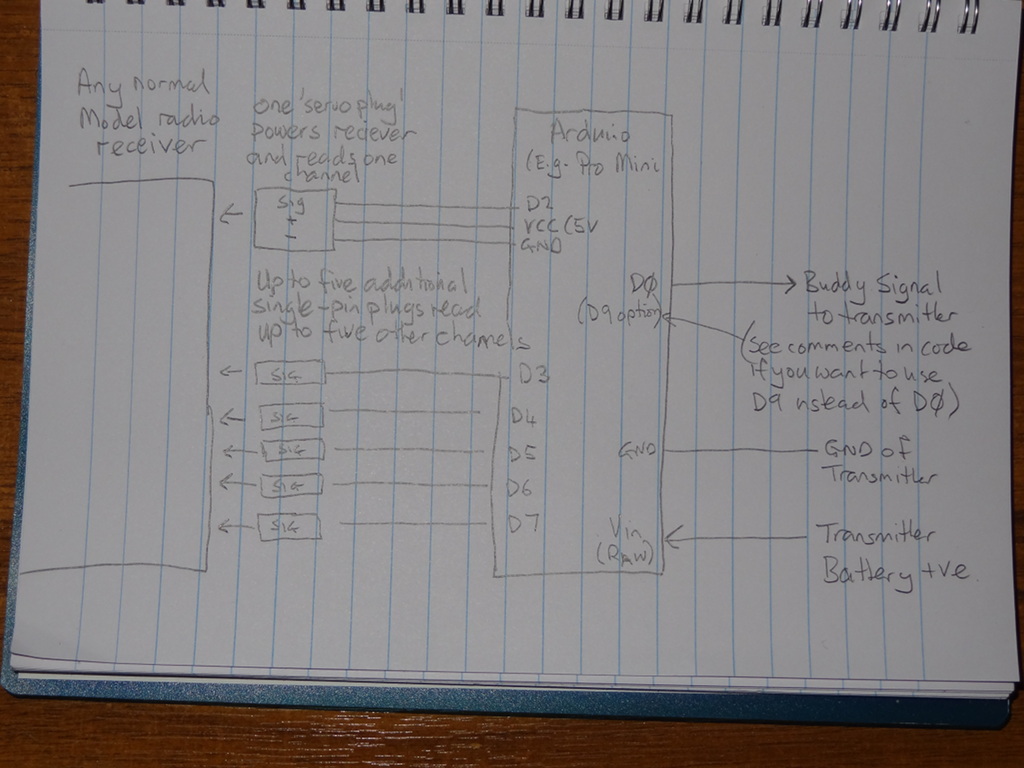 Any normal
Model radio
receiver
one 'servo plug'
powers reciever
and reads one
channel
Sig
+
-
Up to five additional
single-pin plugs read
up to five other channels
SIG
SIG
SIG
SIG
SIG
Arduino
(E.g. Pro Mini
D2
VCC (5V
GND
D3
D4
D5
D6
D7
DØ
(D9 option)
GND
Vin
(Raw)
Buddy Signal
to transmitter
(see comments in code
if you want to use
D9 instead of DØ)
GND of
Transmitter
Transmitter
Battery +ve.